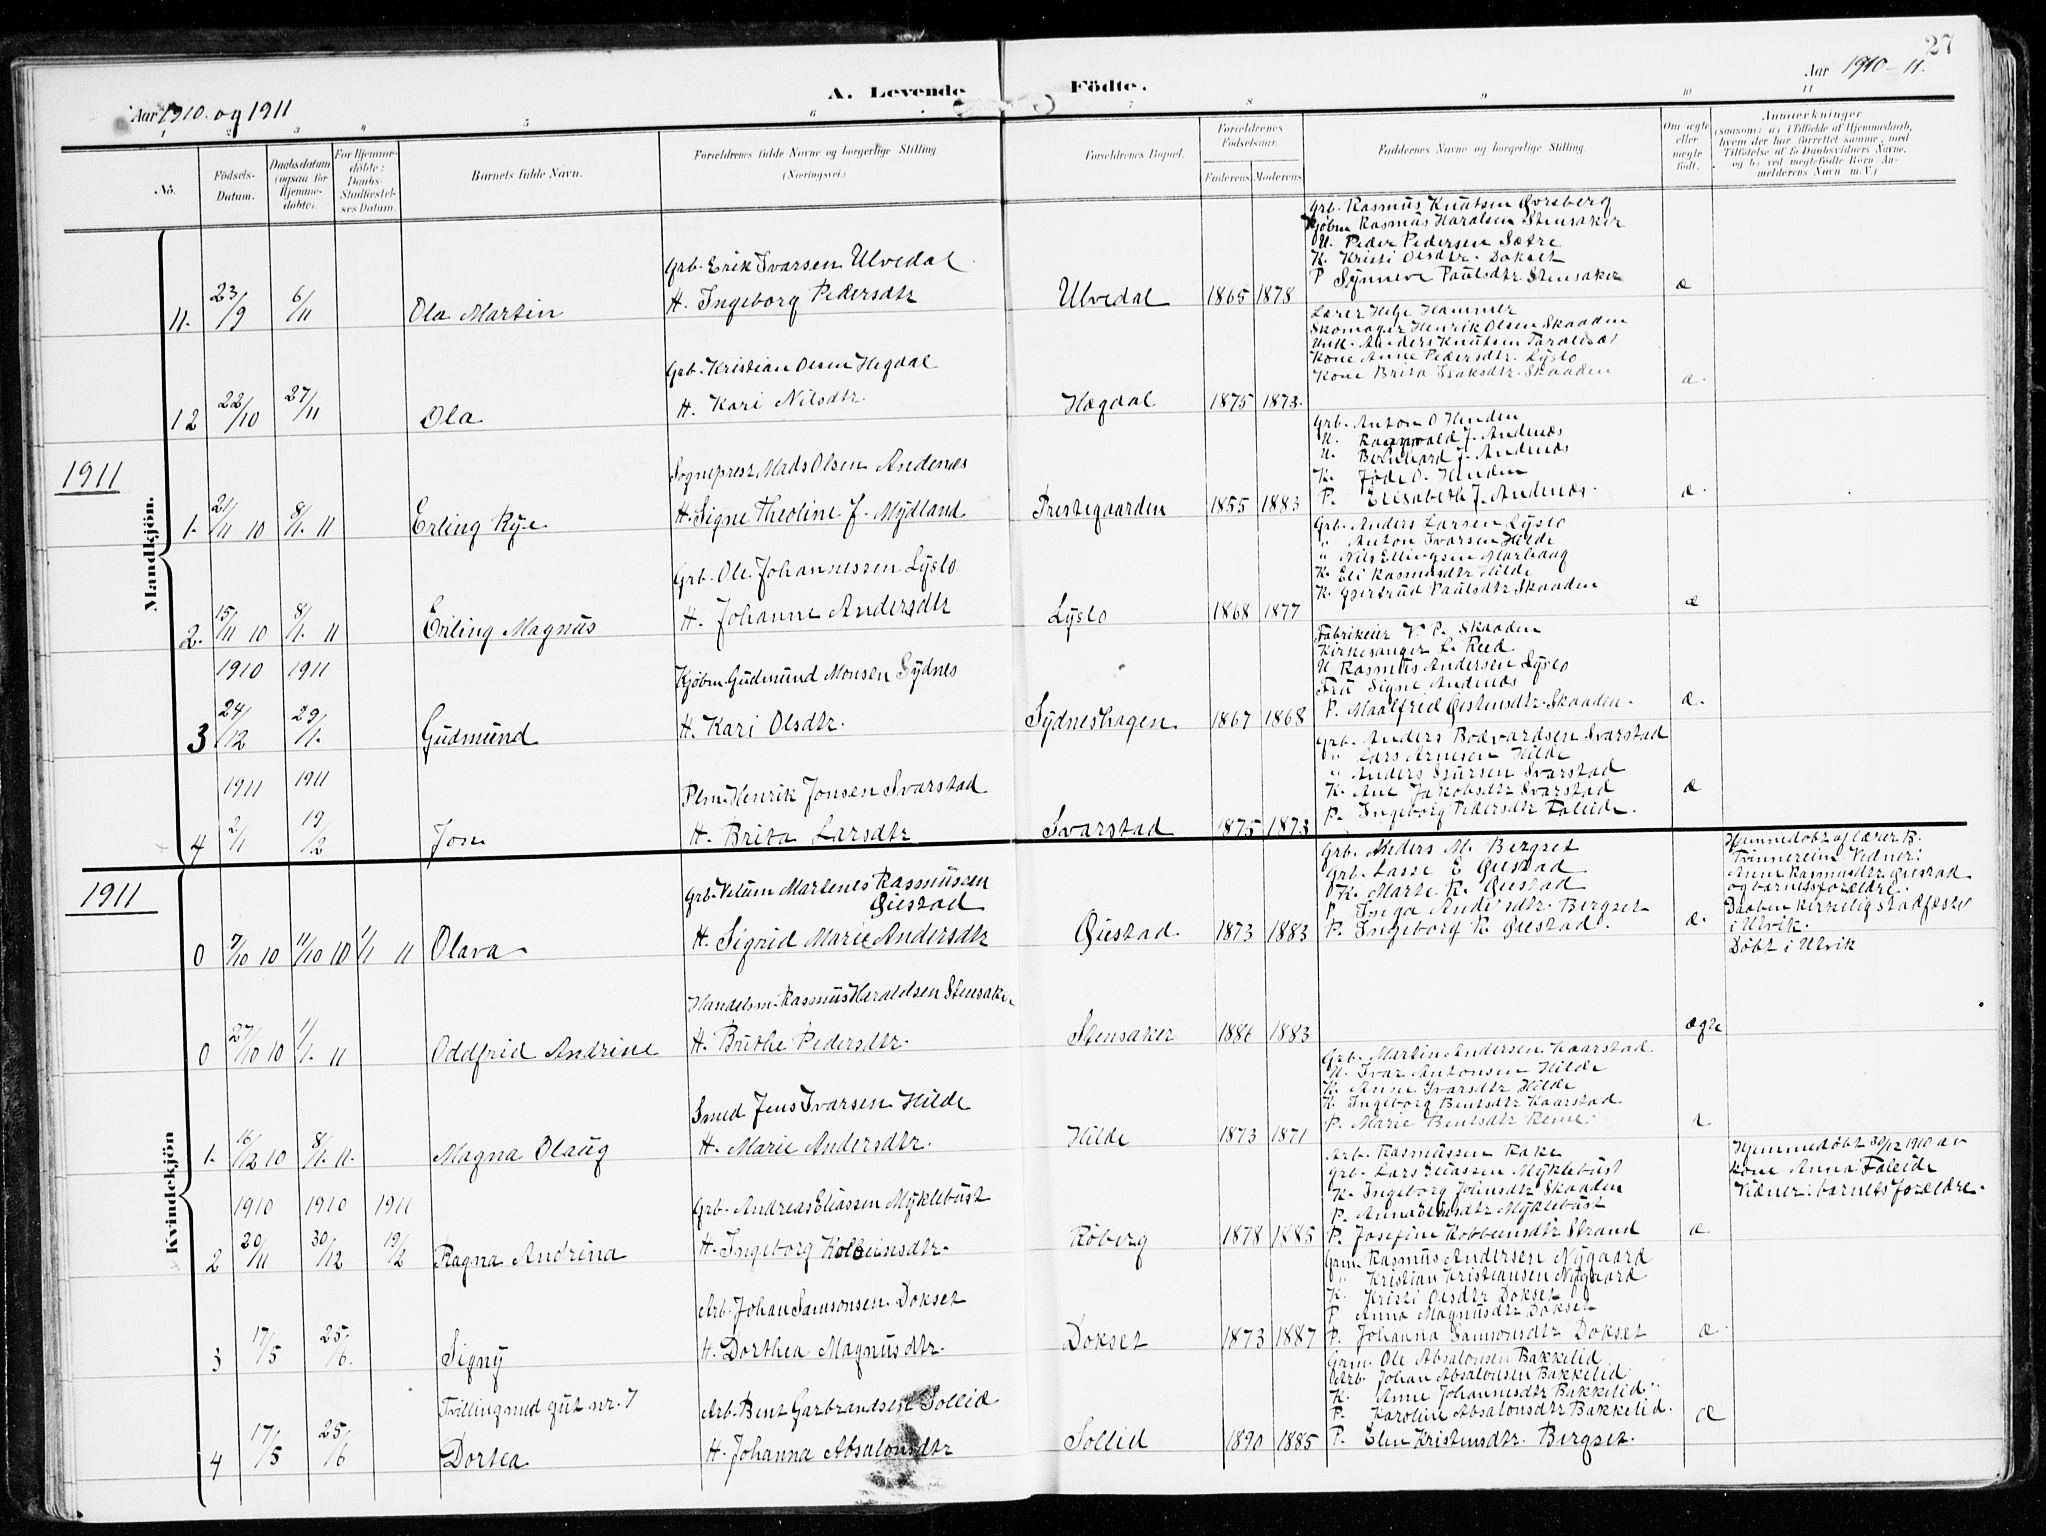 27
Aar 1910 og 1911
A. Levende Födte.
Aar 1910-11.
1 2 3 4 5 6 7 8 9 10 11
Nö.
Födsels-Datum.
Daabsdatum (ogsaa for Hjemmedöbte).
For Hjemmedöbte: Daabs-Stadfæstelses Datum.
Barnets fulde Navn.
Forældrenes fulde Navne og borgerlige Stilling (Næringsvei)
Forældrenes Bopæl.
Forældrenes Födselsaar.
Faderens Moderens
Faddernes Navne og borgerlige Stilling.
Om ægte eller uægte födt.
Anmærkninger
(saasom: a) i Tilfælde af Hjemmedaab, hvem der har forrettet samme, med Tilföielse af to Daabsvidners Navne, og b) ved uægtefödte Börn Anmelderens Navn m. V.)
Mandkjön.
11. 23/9 6/11 Ola Martin
Grb. Erik Ivarsen Ulvedal
H. Ingeborg Pedersdtr
Ulvedal 1865 1878
Grb. Rasmus Knutsen Övrsberg
Kjøbm Rasmus Haralsen Stensaker
U. Peder Pedersen Sætre
K. Kristi Olsdtr. Dokset
P Synneve Paulsdtr Stensaker
æ
12 22/10 27/11 Ola
Grb. Kristian Olsen Hegdal
H. Kari Nilsdtr.
Hægdal 1875 1873.
Lærer Helje Hammer
Skomager Henrik Olsen Skaaden
Unk. Anders Knutsen
Kone Anne Pedersdtr. Lyslo
Kone Brita Isaksdtr. Skaaden
æ.
1911
1. 21/11 10 8/1. 11 Erling Rye
Sogneprest Mads Olsen Andenæs
H. Signe Theoline J. Mydland
Prestegaarden 1855 1883
Grb. Anton O Henden
U. Ragnvald J. Andenæs
U. Bernhard J. Andenæs
K. O. Henden
P. Elisabeth J. Andenæs.
æ.
2. 15/11 10 8/1. 11 Erling Magnus
Grb. Ole Johannessen Lyslo
H. Johanne Andersdtr
Lyslo 1868 1877
Grb. Anders Larsen Lyslo
" Anton Ivarsen Hilde
" Nils Ellingsen Marhaug
K. Eli Rasmusdtr Hilde
K. Gjertrud Paulsdtr Skaaden
æ
1910 1911
3 24/12 29/1. Gudmund
Kjøbm. Gudmund Monsen Sydnes
H. Kari Olsdtr.
Sydneshagen 1867 1868
Fabrikeier P. Skaaden
Kirkesanger L. Reed
U Rasmus Andersen Lyslo
Fru Signe Andenæs
P. Maalfrid Øistensdtr. Skaaden.
æ.
1911 1911
4 2/1 19/2 Jon
Plm. Henrik Jonsen Svarstad
H. Brita Larsdtr
Svarstad 1875 1873
Grb. Anders Bodvardsen Svarstad
" Lars Arnesen Hilde
" Anders Sjursen Svarstad
K. Ane Jakobsdtr Svarstad
P. Ingeborg Pedersdtr Faleide.
æ
1911
Kvindekjön
0 7/10 10 11/10 10 1/1 11 Olava
Grb. Velum Martenes Rasmussen
Øiestad
H. Sigrid Marie Andersdtr
Øiestad 1873 1883
Grb. Anders M. Bergset
Grb. Lasse E Øiestad
K. Marte R. Øiestad
P. Inga Andersdtr. Bergset
P. Ingeborg R. Øiestad.
æ.
Hjemmedøbt af lærer B.
Tvinnereim. Vidner:
Anne Rasmusdtr Øiestad
og barnets forældre.
Daaben kirkelig stadfæstet
i Ulvik.
Døbt i Ulvik
0 27/10 10 1/1. 11 Oddfrid Andrine
Handelsm. Rasmus Haraldsen Stensaker
H. Buthe Pedersdtr.
Stensaker 1886 1883
ægte
1. 16/12 10 8/1. 11. Magna Olaug
Smed Jens Ivarsen Hilde
H. Marie Andersdtr.
Hilde 1873 1871
Grb. Martin Andersen Kaarstad.
U. Ivar Antonsen Hilde
K. Anne Ivarsdtr Hilde
K. Ingeborg Bentsdtr Kaarstad
P. Marie Bentsdtr Reme.
1910 1910 1911
2 20/11 30/12 19/2 Ragna Andrina
Grb. Andreas Eliassen Myklebust
H. Ingeborg Kolbeinsdtr.
Røberg 1878 1885
Arb. Rasmussen Rake
Grb. Lars Eliassen Myklebust
K. Ingeborg Johnsdtr Skaaden
P. Anna Myklebust
P. Josefine Kolbeinsdtr Strand
æ
Hjemmedøbt 30/12 1910 av
kone Anna Faleide
Vidner: barnets forældre.
3 17/5 25/6. Signy
Arb. Johan Samsonsen Dokset
H. Dorthea Magnusdtr.
Dokset 1873 1887
Grm. Rasmus Andersen Nygaard
" Kristian Kristiansen Nygaard
K. Kristi Olsdtr Dokset
P Anna Magnusdtr Dokset
P. Johanna Samsonsdtr Dokset
æ
Tvilling med gut nr. 7
4 17/5 25/6 Dortea
Arb. Bent Garbrandsen Sollid
H. Johanna Absalonsdtr
Sollid 1890 1885
Grm. Ole Absalonsen Bakkelid
Arb. Johan Absalonsen Bakkelid
K. Anne Johannesdtr Bakkelid.
P. Karoline Absalonsdtr Bakkelid.
P. Elen Kristensdtr. Bergset.
æ